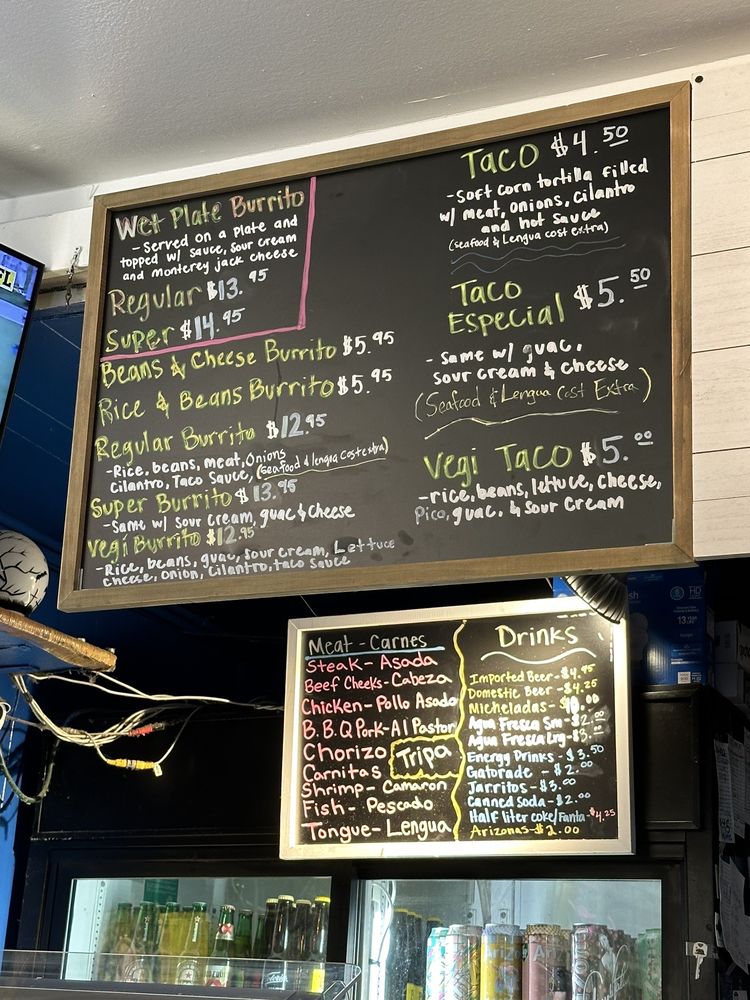 Wet Plate Burrito
- Served on a plate and
topped w/ sauce, sour cream
and monterey jack cheese
Regular $13.95
Super $14.95
Beans & Cheese Burrito $5.95
Rice & Beans Burrito $5.95
Regular Burrito $12.95
- Rice, beans, meat, Onions
Cilantro, Taco Sauce, (seafood & lengua cost extra)
Super Burrito $13.95
- Same w/ sour cream, guac & cheese
Vegi Burrito $12.95
- Rice, beans, guac, sour cream, Lettuce
Cheese, onion, cilantro, taco sauce
Taco $4.50
- Soft corn tortilla filled
w/ meat, onions, cilantro
and hot sauce
(seafood & Lengua cost extra)
Taco
Especial $5.50
- same w/ guac,
sour cream & cheese
(Seafood & Lengua Cost Extra)
Vegi Taco $5.00
- rice, beans, lettuce, cheese,
Pico, guac. & Sour Cream
Meat - Carnes
Steak - Asada
Beef Cheeks - Cabeza
Chicken - Pollo Asado
B.B.Q Pork - Al Pastor
Chorizo
Carnitas
Tripa
Shrimp - Camaron
Fish - Pescado
Tongue - Lengua
Drinks
Imported Beer - $4.95
Domestic Beer - $4.25
Micheladas - $10.00
Agua Fresca Sm - $2.00
Agua Fresca Lrg - $3.00
Energy Drinks - $3.50
Gatorade - $2.00
Jarritos - $3.00
Canned Soda - $2.00
Half liter coke/Fanta - $4.25
Arizonas - $2.00